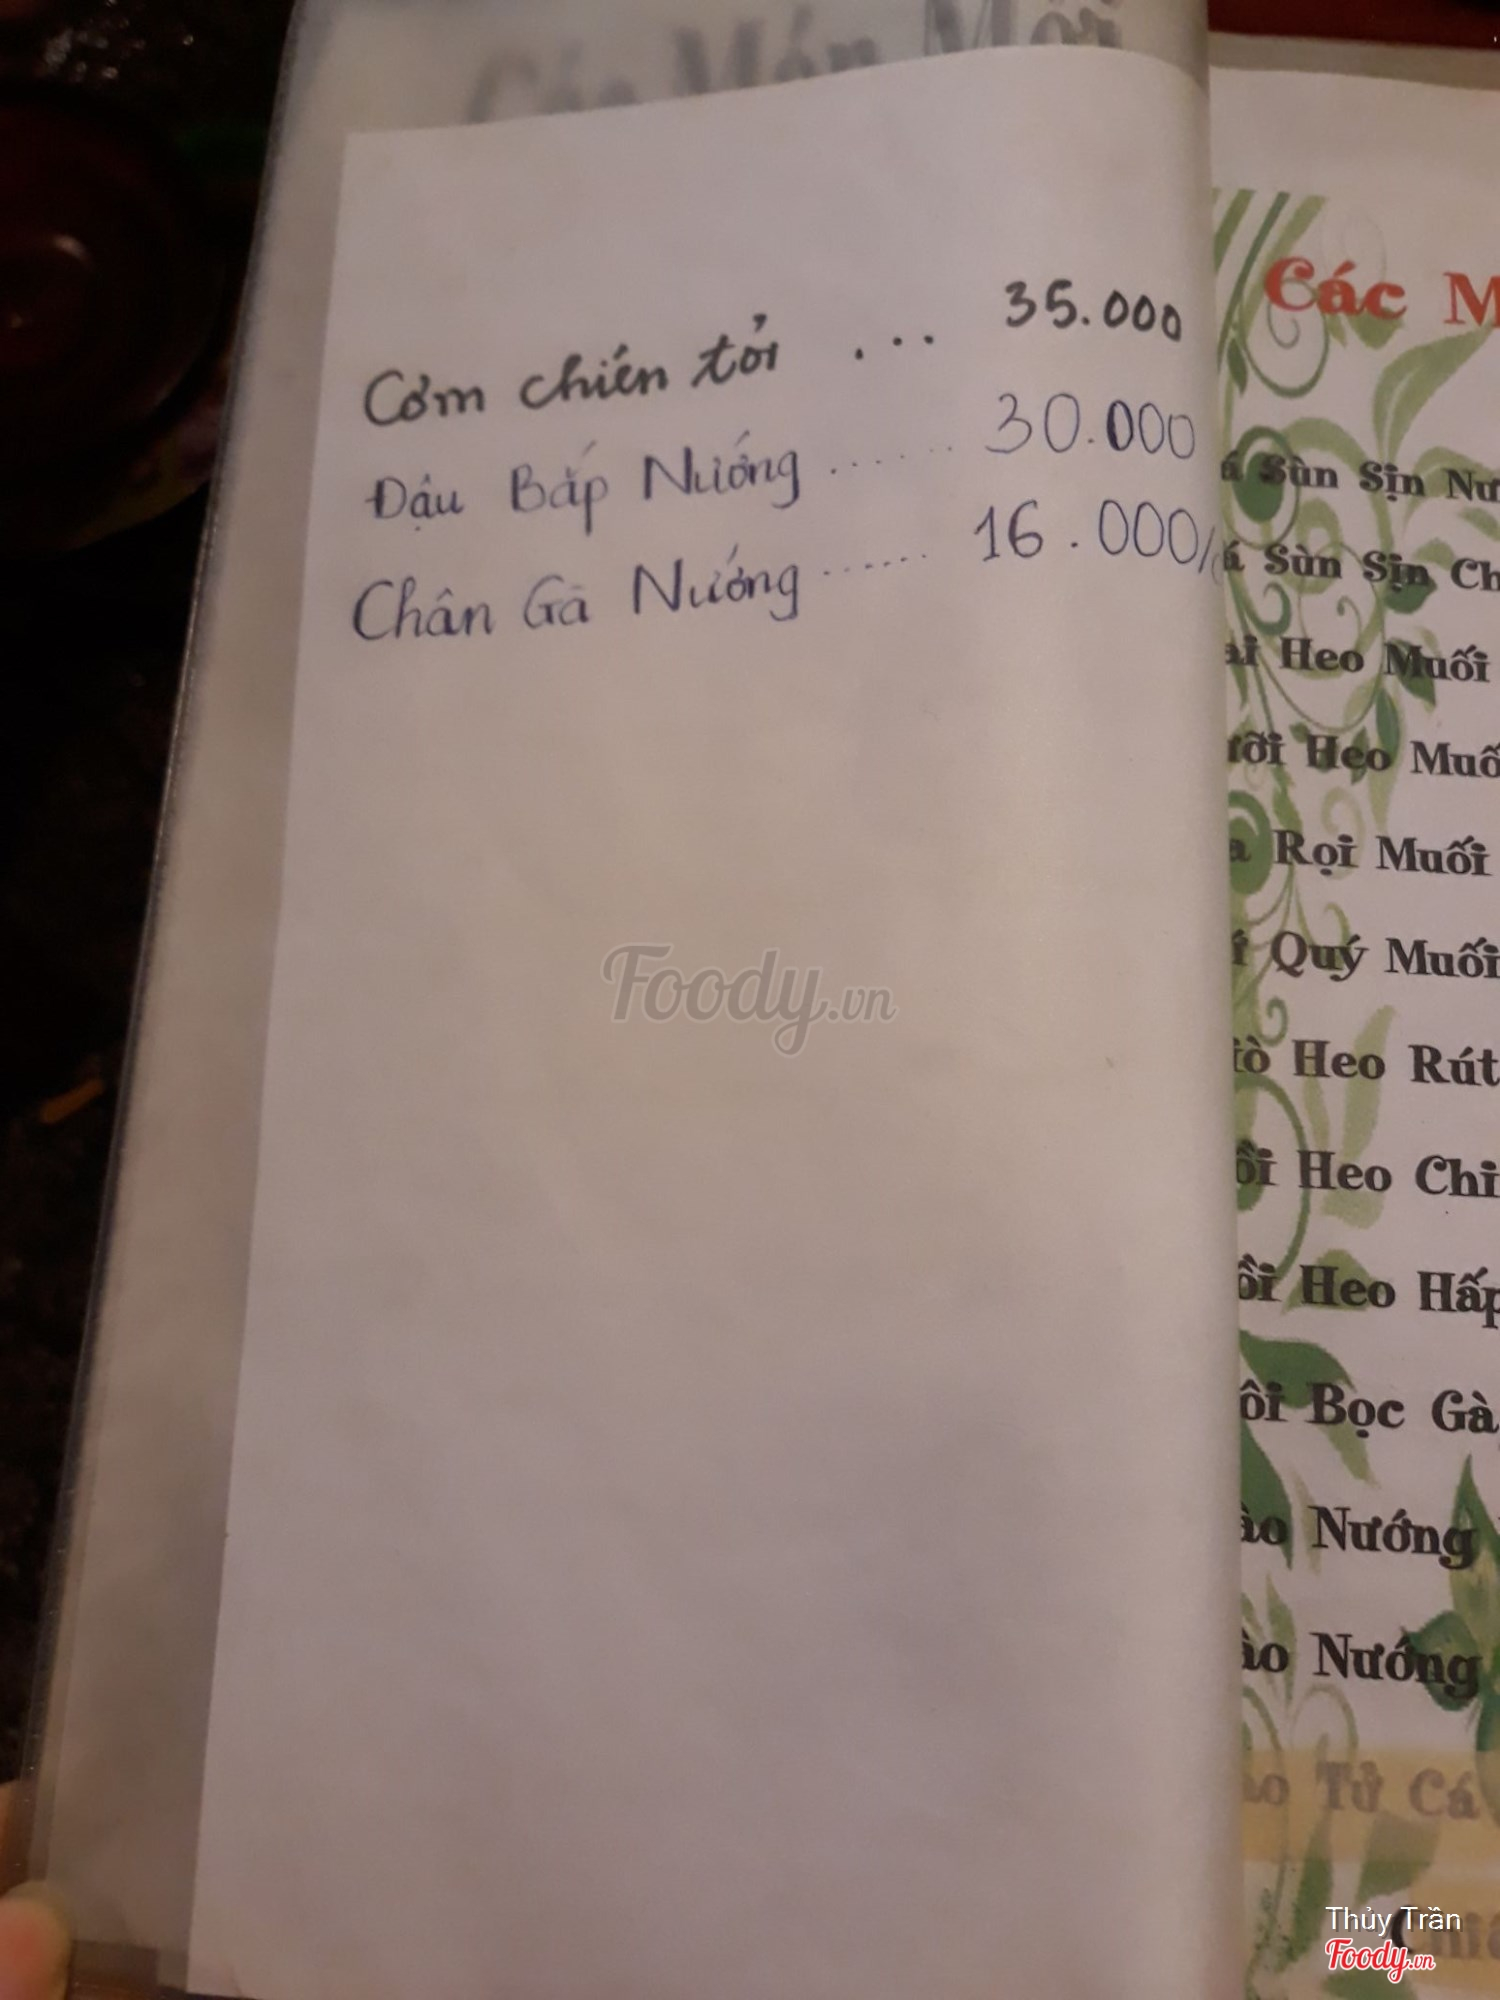 Các Món Mới
Cơm chiên tỏi ... 35.000
Đậu Bắp Nướng ....... 30.000
Chân Gà Nướng ....... 16.000/
Foody.vn
Các M
Sùn Sịn Nư
Sùn Sịn Ch
Heo Muối
Heo Muố
Rọi Muối
Quý Muối
Heo Rút
Heo Chi
Heo Hấp
Bọc Gà
Nướng
Nướng
Tử Cá
Thủy Trần
Foody.vn